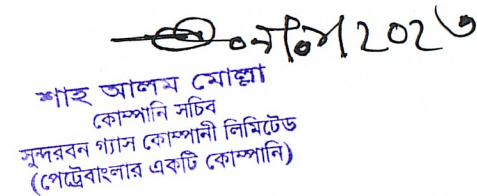 শাহ আলম মোল্লা
কোম্পানি সচিব
সুন্দরবন গ্যাস কোম্পানী লিমিটেড
(পেট্রোবাংলার একটি কোম্পানি)